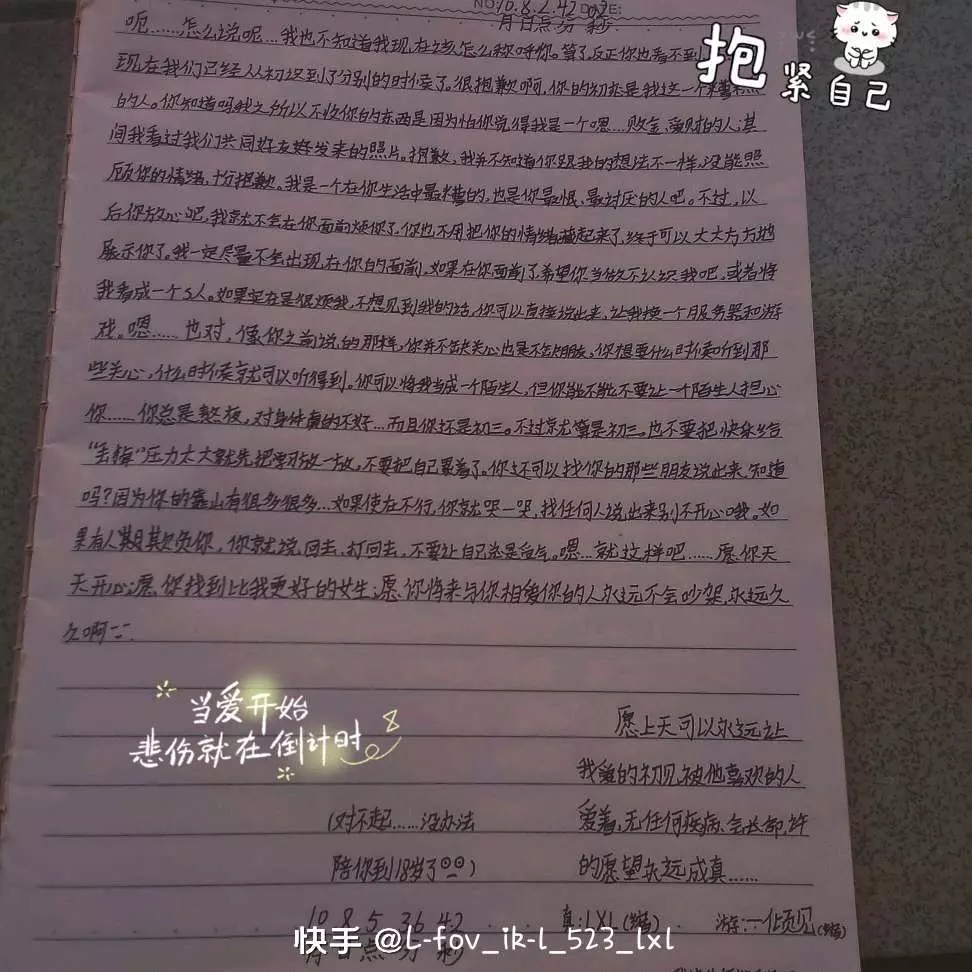 NO.10.8.2.42.03 DATE:
月日点分秒
抱
紧自己
呃……怎么说呢…我也不知道我现在该怎么称呼你。算了反正你也看不到
现在我们已经从初识到了分别的时候了。很抱歉啊,你的初恋是我这一个糟糕
的人。你知道吗我之所以不收你的东西是因为怕你觉得我是一个嗯…败金、爱财的人;其
间我看过我们共同好友好发来的照片。抱歉,我并不知道你跟我的想法不一样,没能照
顾你的情绪,十分抱歉。我是一个在你生活中最糟的,也是你最恨、最讨厌的人吧。不过,以
后你放心吧,我就不会在你面前烦你了。你也不用把你的情绪藏起来了,终于可以大大方方地
展示你了。我一定尽量不会出现在你的面前,如果在你面前了,希望你当做不认识我吧,或者将
我看成一个S人。如果实在是很烦我,不想见到我的话,你可以直接说出来,让我换一个服务器和游
戏。嗯……也对,像你之前说的那样,你并不缺关心也是不缺朋友,你想要什么时候听到那
些关心,什么时候就可以听得到。你可以将我当成一个陌生人,但你能不能不要让一个陌生人担心
你……你总是熬夜,对身体真的不好…而且你还是初三。不过就算是初三。也不要把快乐给
“丢掉”压力太大就先把学习放一放,不要把自己累着了。你还可以找你的那些朋友说出来,知道
吗?因为你的靠山有很多很多…如果实在不行,你就哭一哭,找任何人说出来别不开心哦。如
果有人欺负你,你就说回去,打回去,不要让自己总是受气。嗯…就这样吧……愿你天
天开心;愿你找到比我更好的女生;愿你将来与你相爱你的人永远不会吵架,永远久
久啊
当爱开始
悲伤就在倒计时
愿上天可以永远让
我爱的初见被他喜欢的人
(对不起……没办法
爱着,无任何疾病、
陪你到18岁了
的愿望永远成真……
10 8 5 36 42
月日点分秒
真:LXL
游:一倾见
快手 @L-fov_ik-l_523_lxl